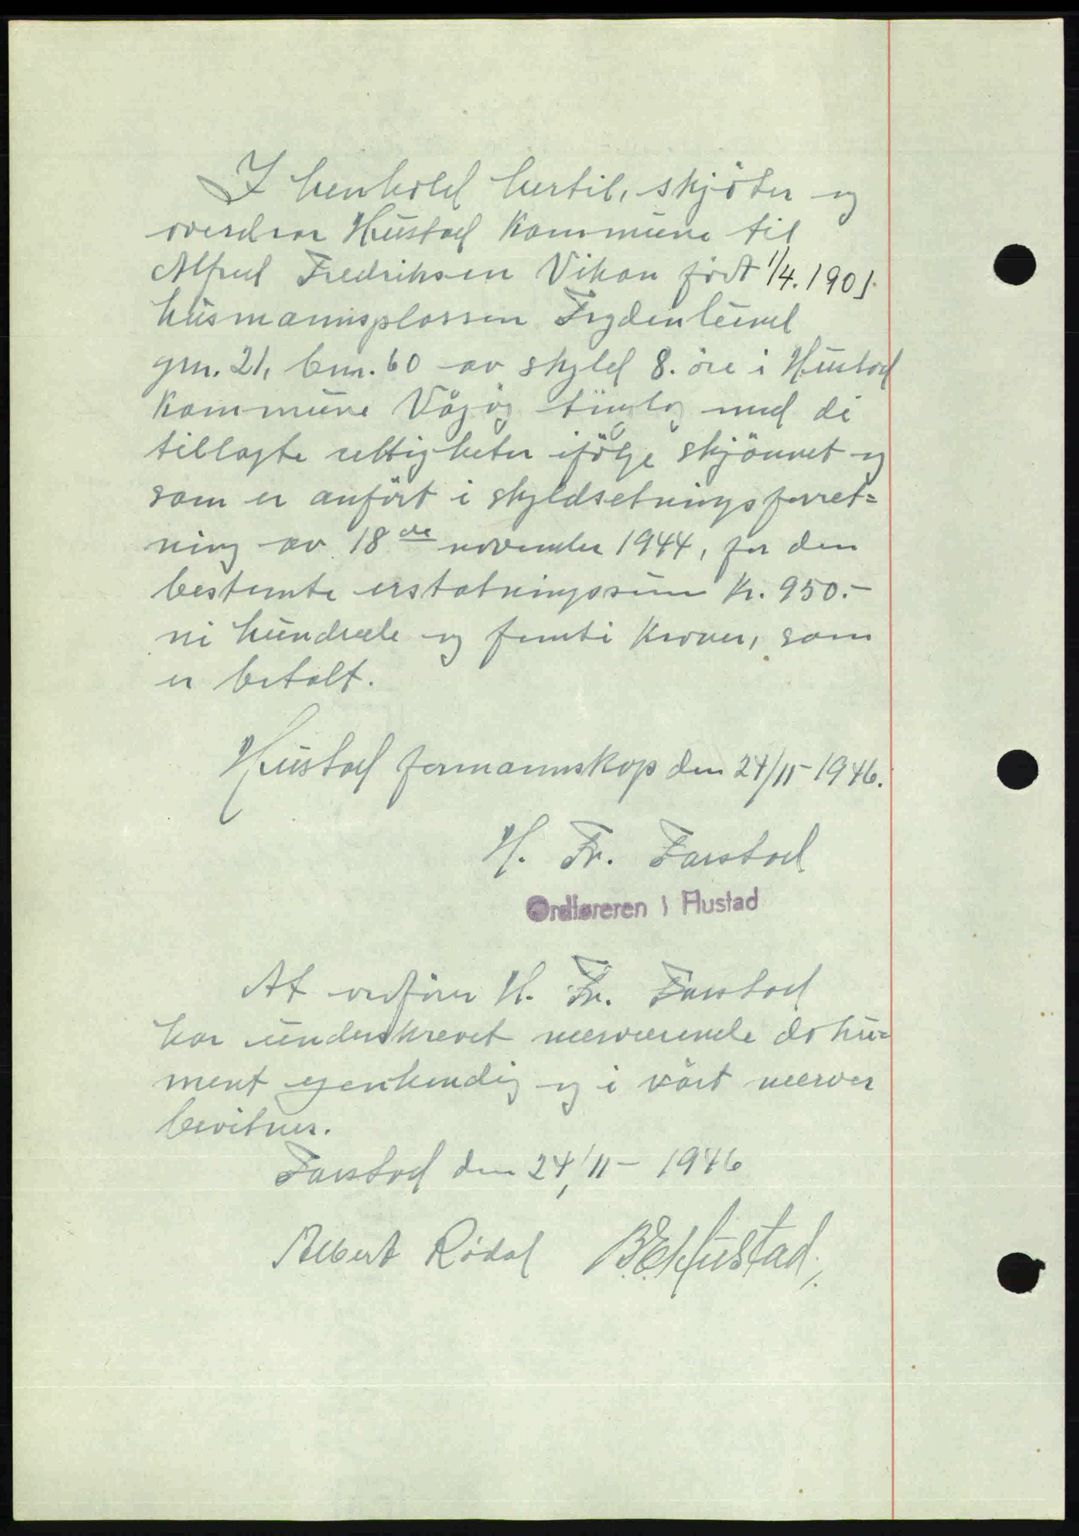 I henhold hertil, skjöter og
overdrar Hustad Kommune til
Alfred Fredriksen Vikan född 1/4. 1901
husmannsplassen Frydenlund
gnr. 21, bnr. 60 av skyld 8. öre i Hustad
Kommune Vågöy tinglag med de
tillagte rettigheter ifölge skjönnet og
som er anfört i skyldsetningsforret=
ning av 18 de november 1944, for den
bestemte erstatningssum Kr. 950.-
ni hundrede og femti Kroner, som
er betalt.
Hustad formannskap den 24/11-1946.
H. Fr. Farstad
Ordføreren i Hustad
At ordförer H. Fr. Farstad
har underskrevet nærværende doku=
ment egenhendig og i vårt nærvær
bevitnes.
Farstad den 24/11- 1946
Albert Rødal B.E.Hustad.